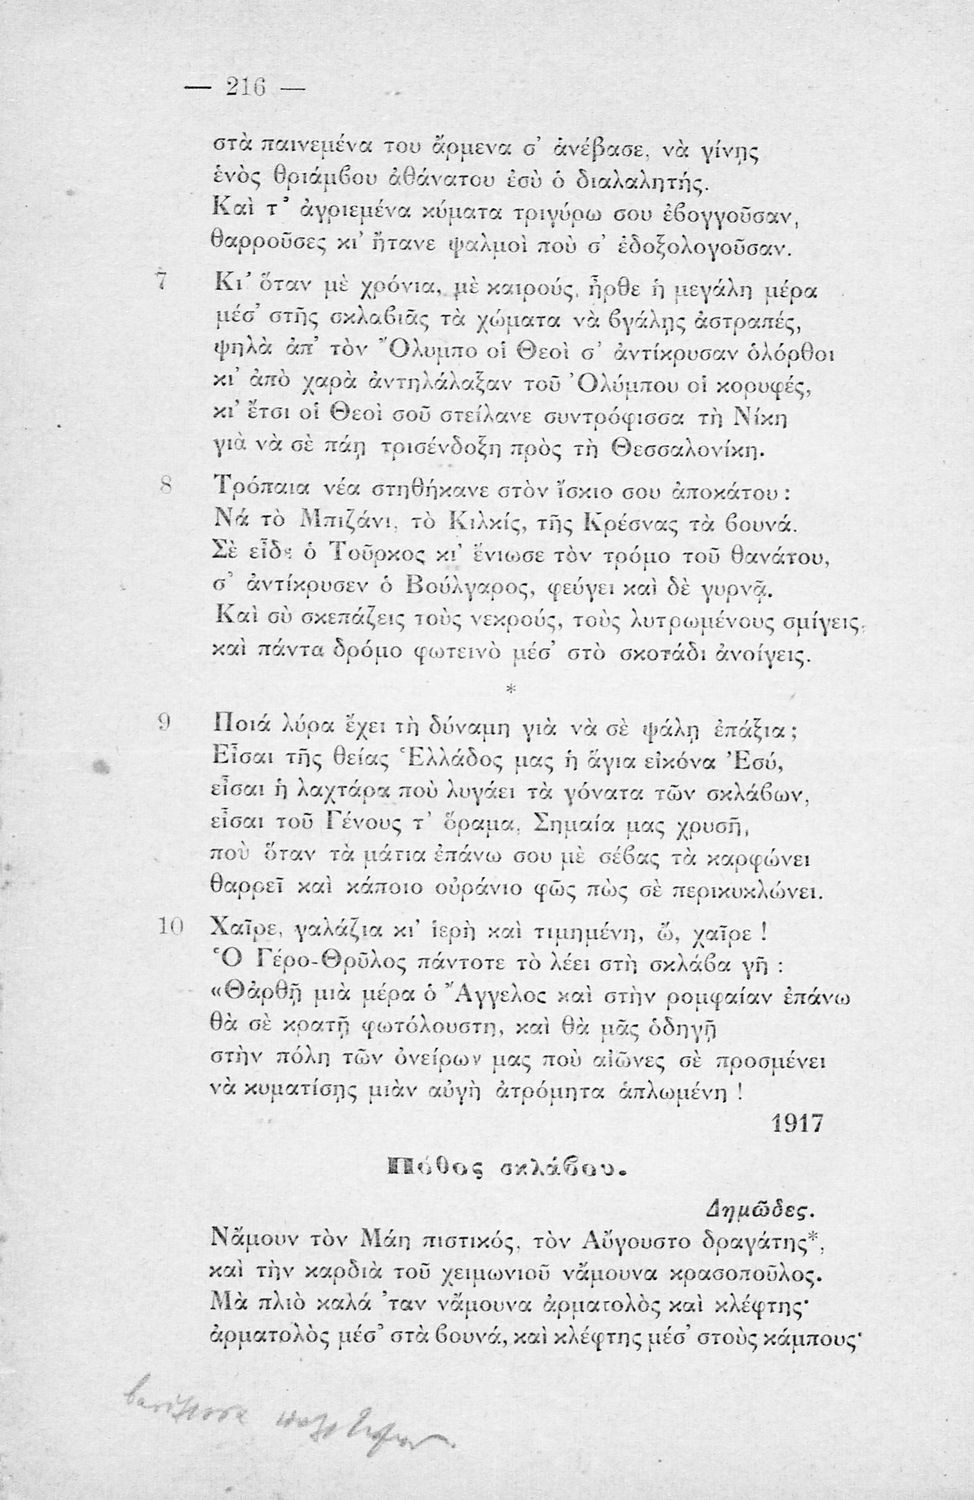 — 216 —
στὰ παινεμένα του ἄρμενα σ’ ἀνέβασε, νὰ γίνῃς
ἑνὸς θριάμβου ἀθάνατου ἐσὺ ὁ διαλαλητής.
Καὶ τ’ ἀγριεμένα κύματα τριγύρω σου ἐβογγοῦσαν,
θαρροῦσες κι’ ἤτανε ψαλμοὶ ποὺ σ’ ἐδοξολογοῦσαν.
7 Κι’ ὅταν μὲ χρόνια, μὲ καιρούς, ἦρθε ἡ μεγάλη μέρα
μέσ’ στῆς σκλαβιᾶς τὰ χώματα νὰ βγάλῃς ἀστραπές,
ψηλὰ ἀπ’ τὸν Ὄλυμπο οἱ Θεοὶ σ’ ἀντίκρυσαν ὁλόρθοι
κι’ ἀπὸ χαρὰ ἀντηλάλαξαν τοῦ Ὀλύμπου οἱ κορυφές,
κι’ ἔτσι οἱ Θεοὶ σοῦ στείλανε συντρόφισσα τὴ Νίκη
γιὰ νὰ σὲ πάῃ τρισένδοξη πρὸς τὴ Θεσσαλονίκη.
8 Τρόπαια νέα στηθήκανε στὸν ἴσκιο σου ἀποκάτου :
Νά τὸ Μπιζάνι, τὸ Κιλκίς, τῆς Κρέσνας τὰ βουνά.
Σὲ εἶδε ὁ Τοῦρκος κι’ ἔνιωσε τὸν τρόμο τοῦ θανάτου,
σ’ ἀντίκρυσεν ὁ Βούλγαρος, φεύγει καὶ δὲ γυρνᾷ.
Καὶ σὺ σκεπάζεις τοὺς νεκρούς, τοὺς λυτρωμένους σμίγεις,
καὶ πάντα δρόμο φωτεινὸ μέσ’ στὸ σκοτάδι ἀνοίγεις.
*
9 Ποιά λύρα ἔχει τὴ δύναμη γιὰ νὰ σὲ ψάλῃ ἐπάξια ;
Εἶσαι τῆς θείας Ἑλλάδος μας ἡ ἅγια εἰκόνα Ἐσύ,
εἶσαι ἡ λαχτάρα ποὺ λυγάει τὰ γόνατα τῶν σκλάβων,
εἶσαι τοῦ Γένους τ’ ὅραμα, Σημαία μας χρυσῆ,
ποὺ ὅταν τὰ μάτια ἐπάνω σου μὲ σέβας τὰ καρφώνει
θαρρεῖ καὶ κάποιο οὐράνιο φῶς πὼς σὲ περικυκλώνει.
10 Χαῖρε, γαλάζια κι’ ἱερὴ καὶ τιμημένη, ὤ, χαῖρε !
Ὁ Γέρο-Θρῦλος πάντοτε τὸ λέει στὴ σκλάβα γῆ :
«Θἀρθῇ μιὰ μέρα ὁ Ἄγγελος καὶ στὴν ρομφαίαν ἐπάνω
θὰ σὲ κρατῇ φωτόλουστη, καὶ θὰ μᾶς ὁδηγῇ
στὴν πόλη τῶν ὀνείρων μας ποὺ αἰῶνες σὲ προσμένει
νὰ κυματίσῃς μιὰν αὐγὴ ἀτρόμητα ἁπλωμένη !
1917
Πόθος σκλάβου.
Δημῶδες.
Νἄμουν τὸν Μάη πιστικός, τὸν Αὔγουστο δραγάτης*,
καὶ τὴν καρδιὰ τοῦ χειμωνιοῦ νἄμουνα κρασοποῦλος.
Μὰ πλιὸ καλά ’ταν νἄμουνα ἀρματολὸς καὶ κλέφτης·
ἀρματολὸς μέσ’ στὰ βουνά, καὶ κλέφτης μέσ’ στοὺς κάμπους·